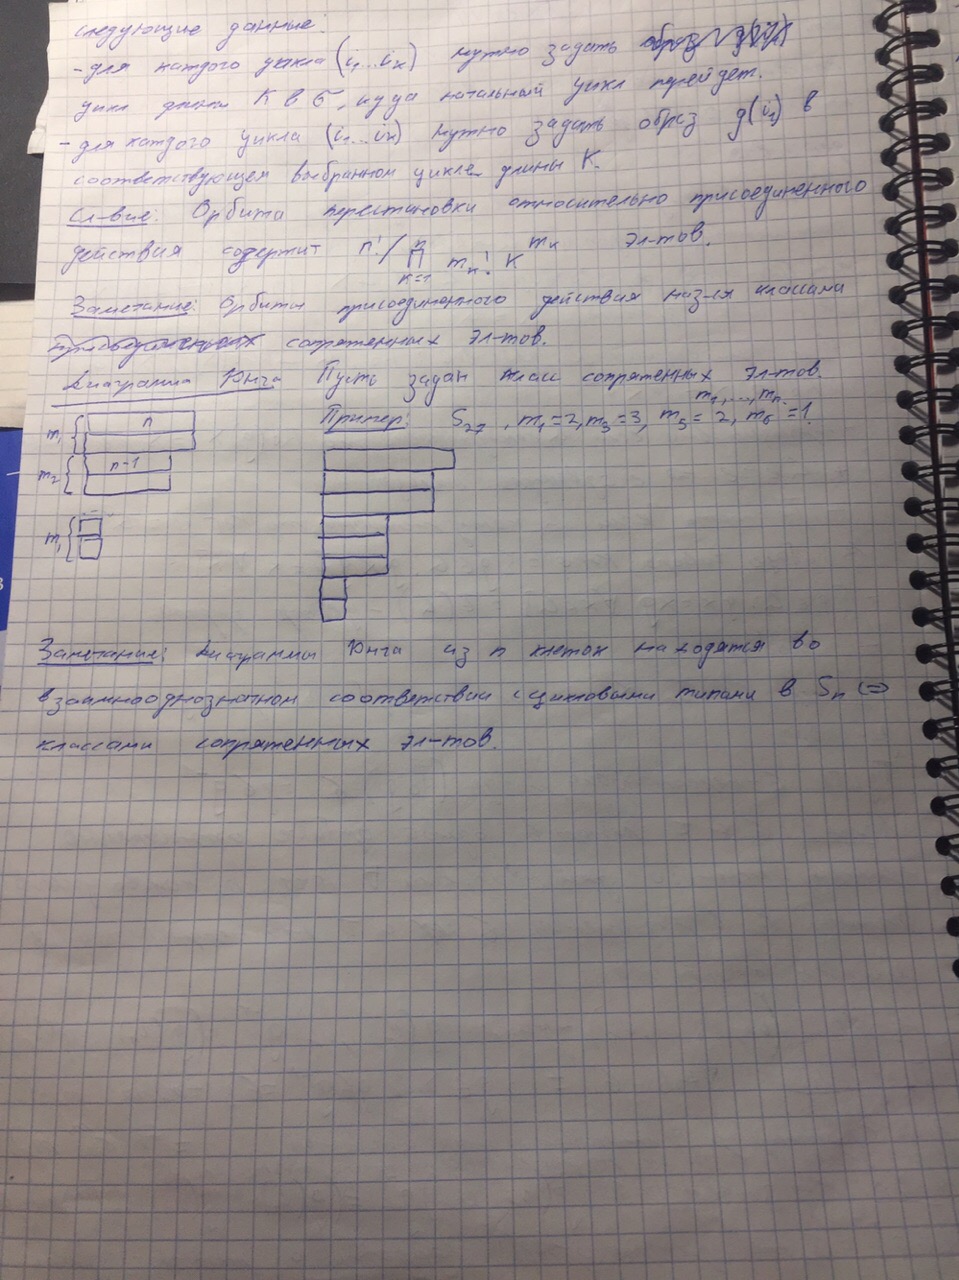 следующие данные:
- для каждого цикла (i₁...iₖ) нужно задать
цикл длины K в σ, куда начальный цикл перейдет.
- для каждого цикла (i₁...iₖ) нужно задать образ g(i₁) в
соответствующем выбранном цикле длины K.
Сл-вие: Орбита перестановки относительно присоединенного
действия содержит n! / ∏ₖ₌₁ⁿ mₖ! K^mₖ эл-тов.
Замечание: Орбиты присоединенного действия наз-ся классами
сопряженных эл-тов.
Диаграмма Юнга Пусть задан класс сопряженных эл-тов.
m₁,...,mₙ.
Пример: S₂₇, m₁=2, m₃=3, m₅=2, m₆=1.
m₁ { n
m₂ { n-1
m₁ {
Замечание: Диаграммы Юнга из n клеток находятся во
взаимнооднозначном соответствии с цикловыми типами в Sₙ ⇔
классами сопряженных эл-тов.